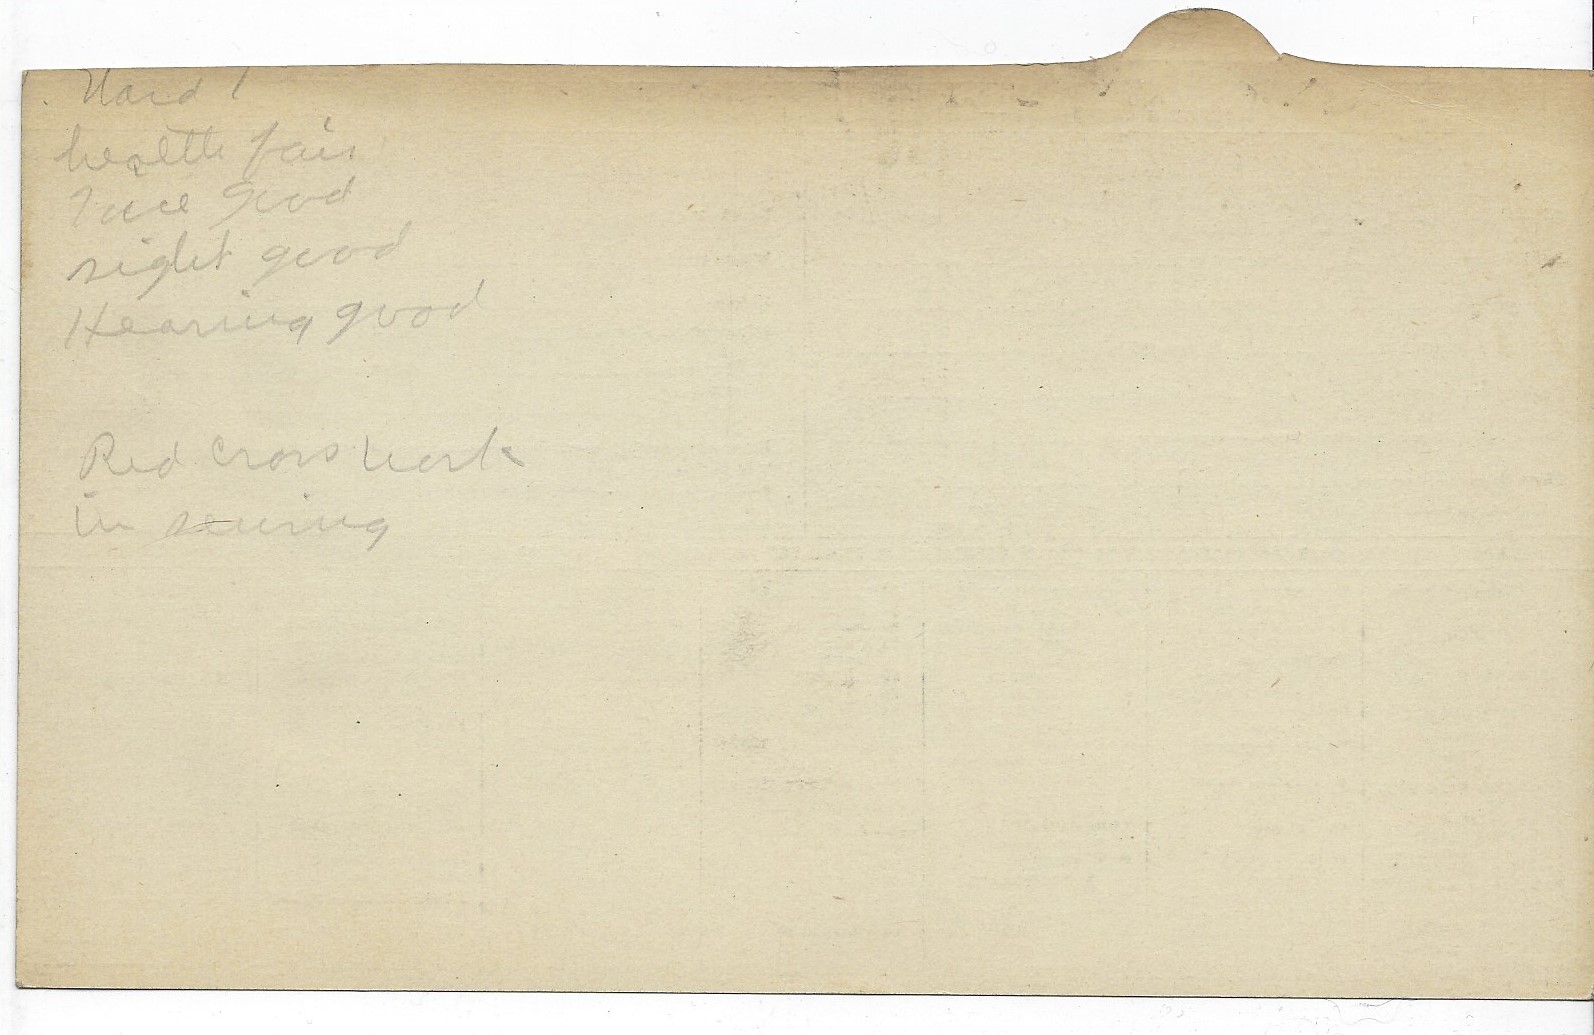 Ward 1
health fair
good
sight good
Hearing good
Red Cross work
in sewing